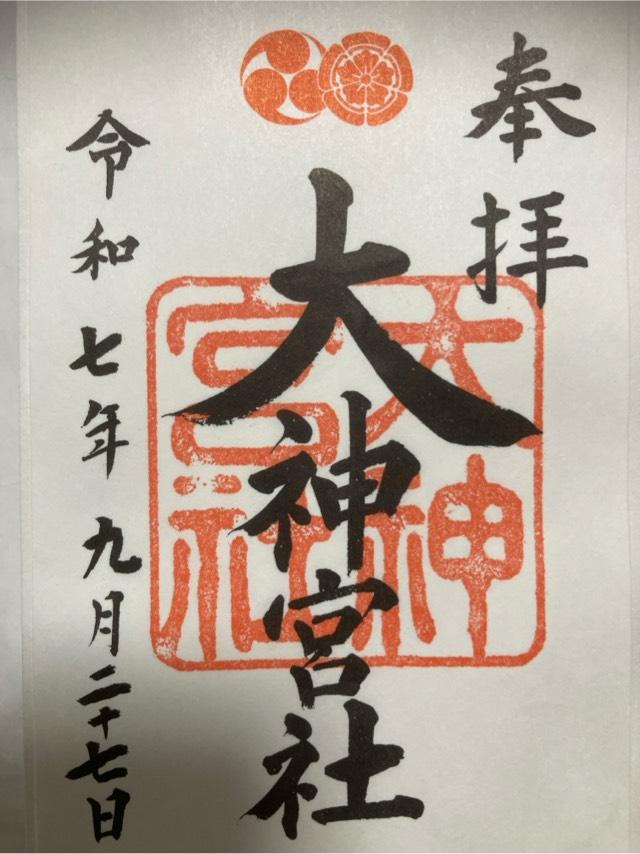 奉拝
大神宮社
大神宮社
令和七年九月二十七日